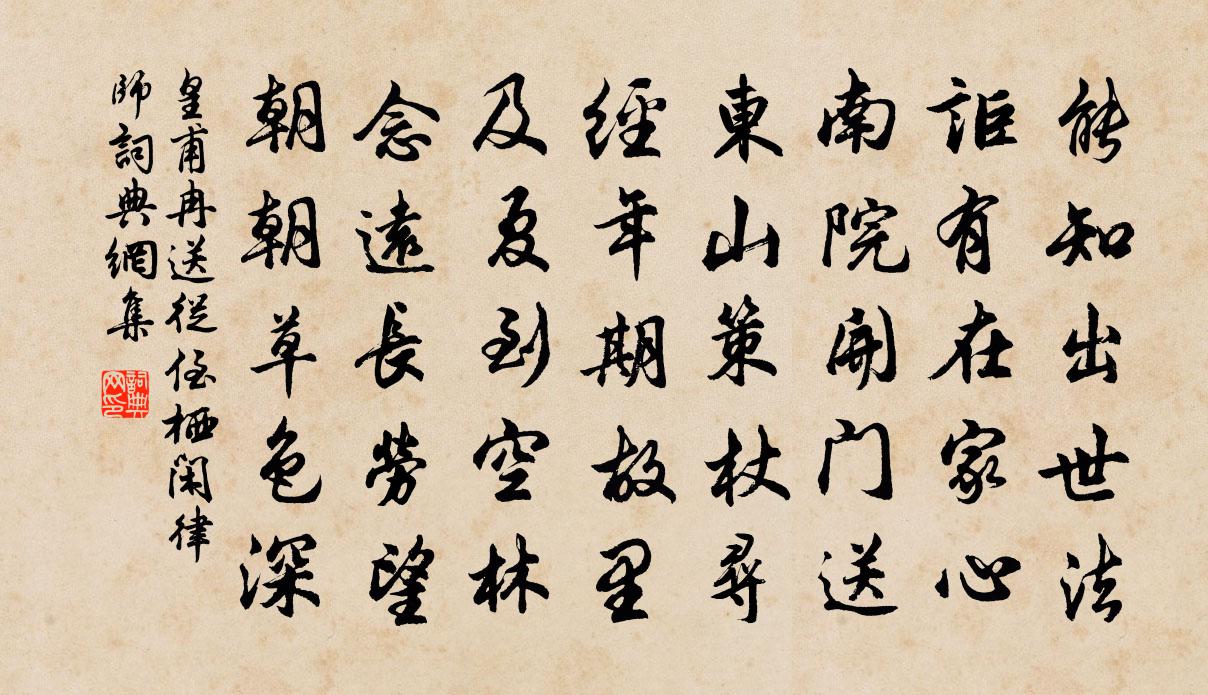 能知出世法
詎有在家心
南院開門送
東山策杖尋
經年期故里
及夏到空林
念遠長勞望
朝朝草色深
皇甫冉送從侄栖閑律
師詞典網集
詞典
网印